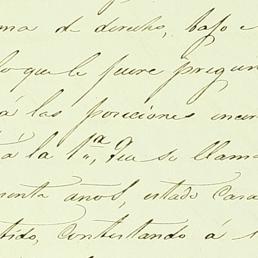 ma de derecho, bajo e
lo que le fuere pregun
á las posiciones incer
á la 1ª, Que se llama
enta años, estado Casa
tido, Contestando á